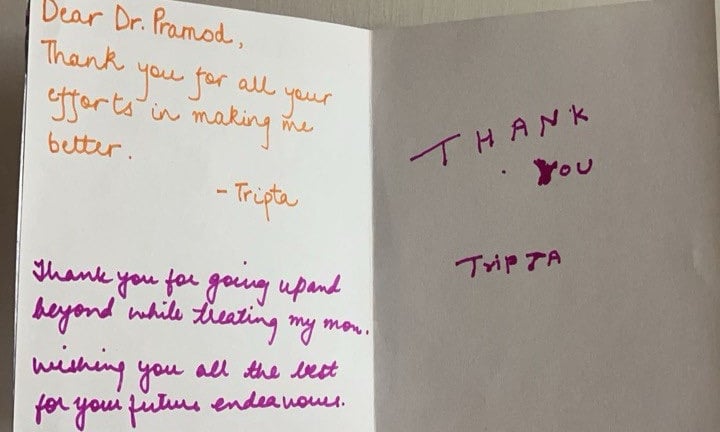 Dear Dr. Pramod,
Thank you for all your
efforts in making me
better.
- Tripta
Thank you for going up and
beyond while treating my mom.
Wishing you all the best
for your future endeavours.
THANK
YOU
TripTA